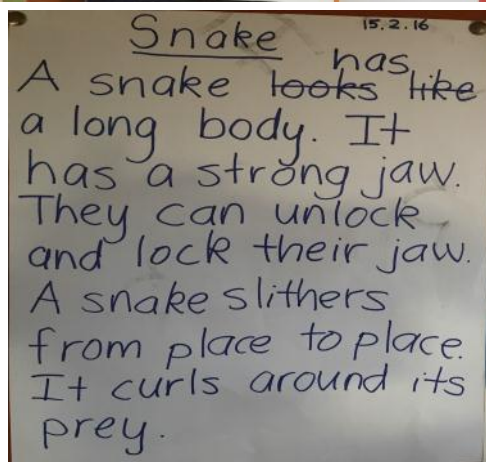 15.2.16
Snake
has
A snake looks like
a long body. It
has a strong jaw.
They can unlock
and lock their jaw.
A snake slithers
from place to place.
It curls around its
prey.